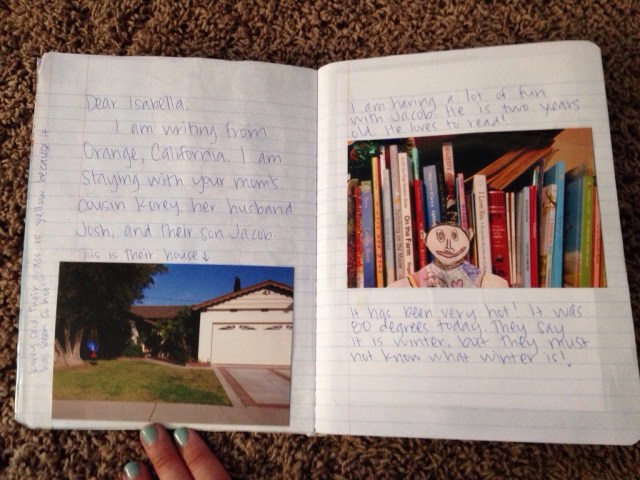 Dear Isabella,
I am writing from
Orange, California. I am
staying with your mom's
cousin Korey, her husband
Josh, and their son Jacob.
This is their house↓
Korey said their grass is yellow because it
has been so hot!
I am having a lot of fun
with Jacob. He is two years
old. He loves to read!
On the Farm
I Love You
It has been very hot! It was
80 degrees today. They say
it is winter, but they must
not know what winter is!